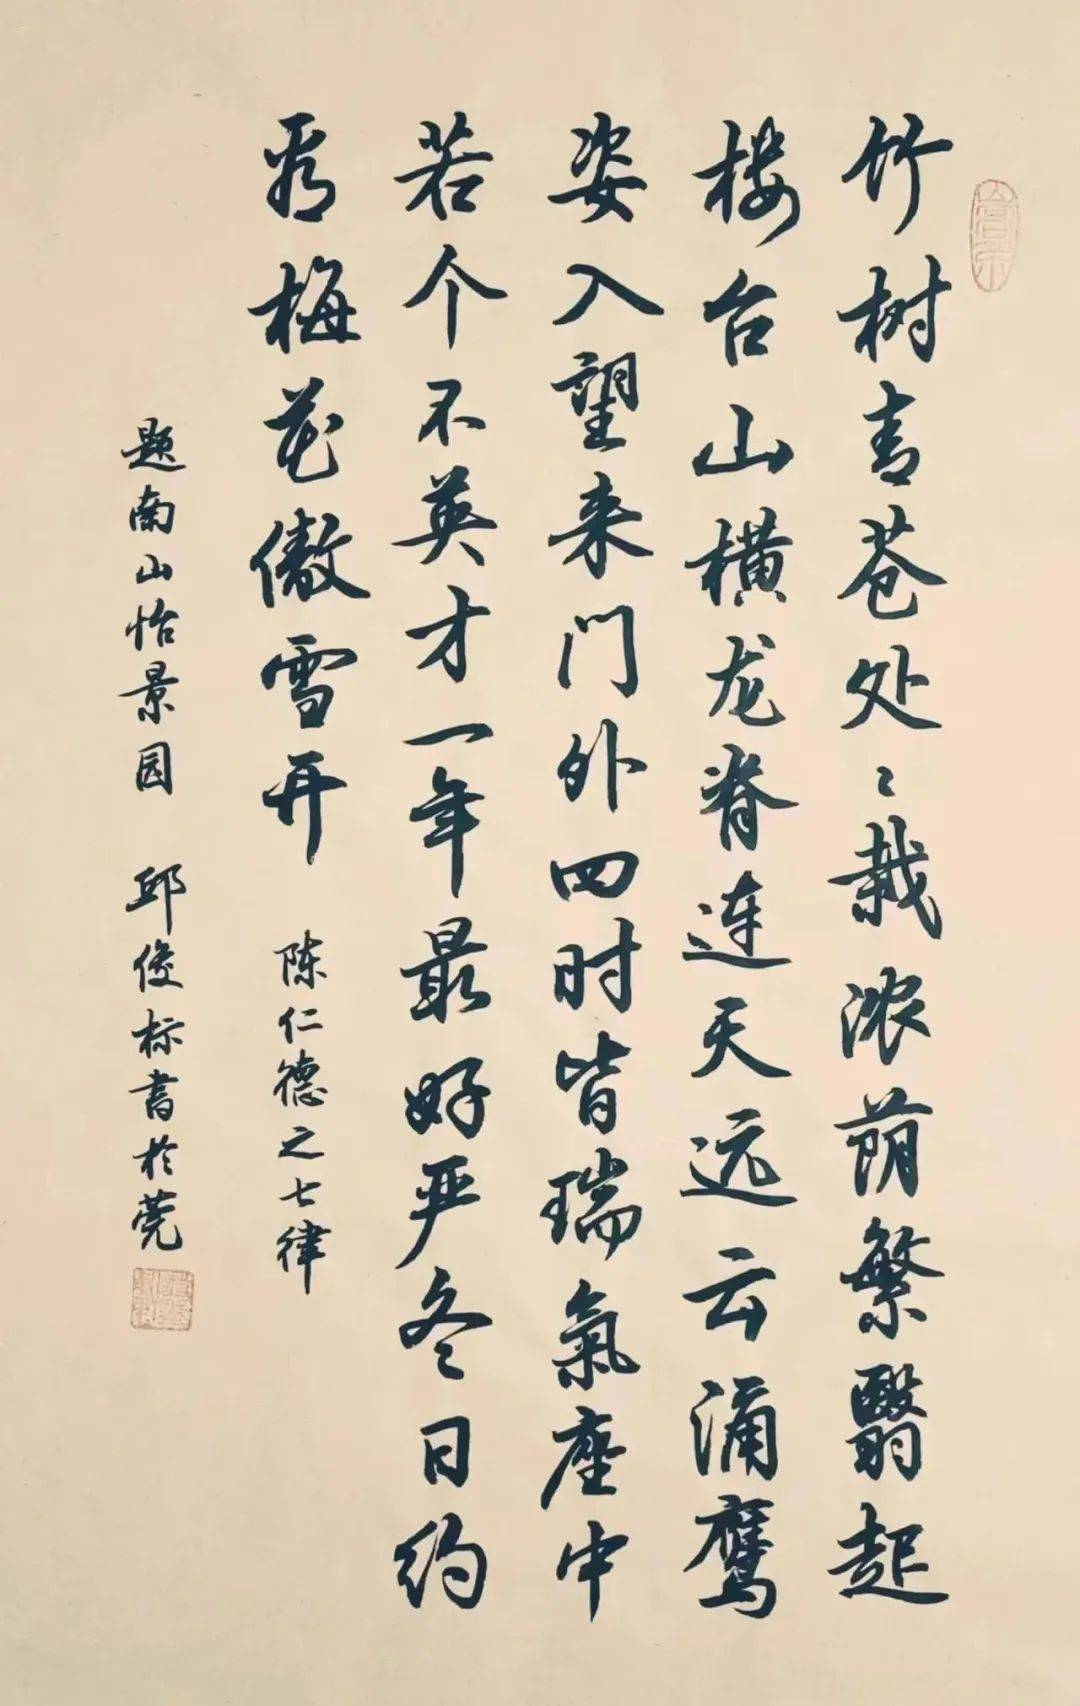 竹树青苍处〻栽浓荫繁翳起
楼台山横龙脊连天远云涌鹰
姿入望来门外四时皆瑞氣座中
若个不英才一年最好严冬日约
看梅花傲雪开 陈仁德之七律
题南山怡景园 邱俊标書於莞